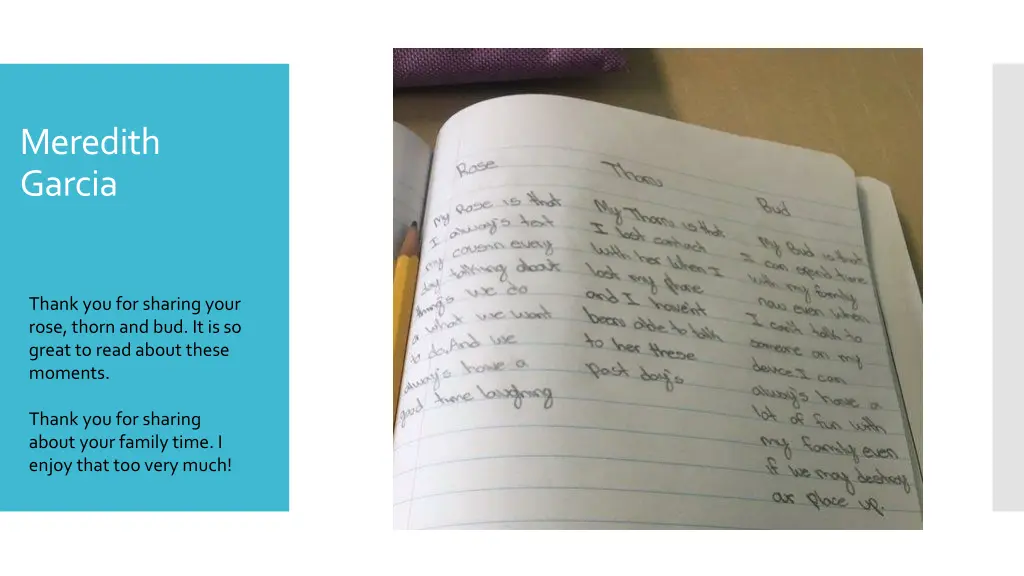 Meredith
Garcia
Thank you for sharing your
rose, thorn and bud. It is so
great to read about these
moments.
Thank you for sharing
about your family time. I
enjoy that too very much!
Rose
My Rose is that
I always text
my cousin every
day talking about
thing's we do
a what we want
to do. And we
alway's have a
good time laughing
Thorn
My Thorn is that
I lost contact
with her when I
lost my phone
and I haven't
been able to talk
to her these
past day's
Bud
My Bud is that
I can spend time
with my family
now even when
I can't talk to
someone on my
device I can
alway's have a
lot of fun with
my family even
if we may destroy
our place up.